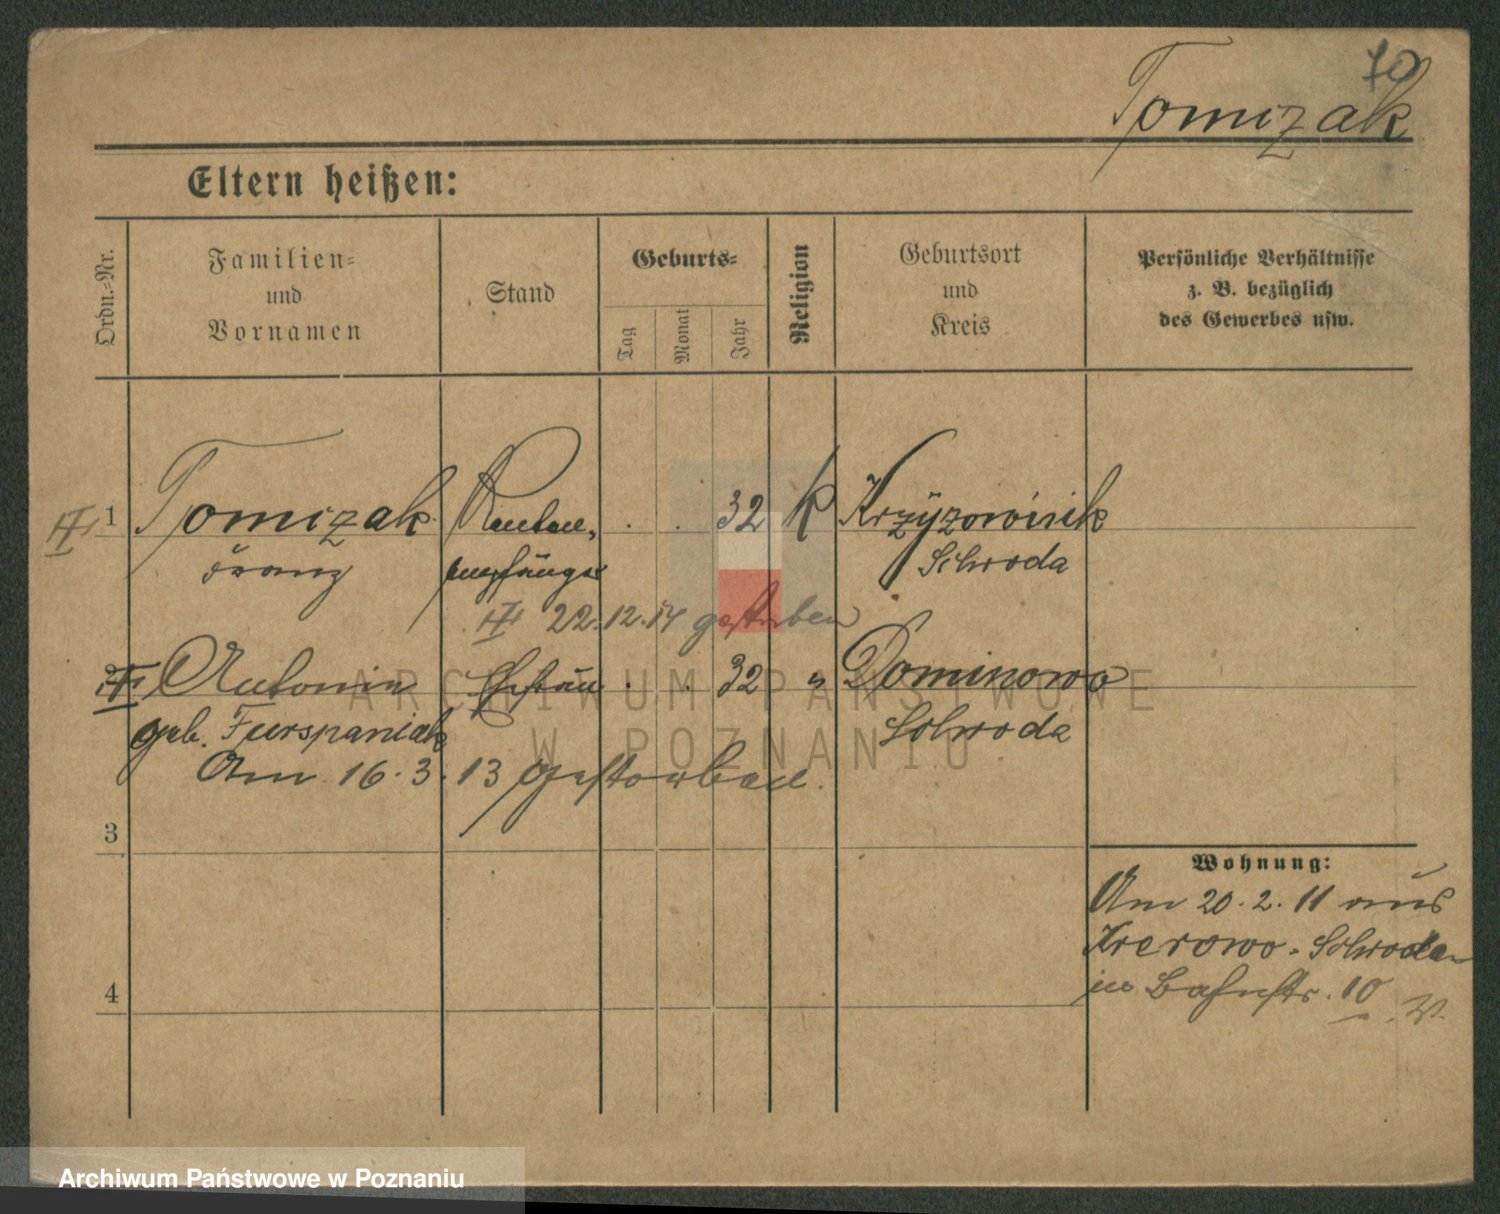 70
Tomczak
Eltern heißen:
Ordn.-Nr.
Familien-
und
Vornamen
Stand
Geburts-
Tag
Monat
Jahr
Religion
Geburtsort
und
Kreis
Persönliche Verhältnisse
z. B. bezüglich
des Gewerbes usw.
1 Tomczak Renten- . . 32 k
franz empfänger Schroda
22.12.14 gestorben
2 Antonia Ehefrau . . 32 " Dominowo
geb. Furspaniak Schroda
Am 16.3.13 gestorben.
3
4
Wohnung:
Am 20.2.11 aus
Krerowo - Schroda
in Bahnstr. 10
ARCHIWUM PAŃSTWOWE
W POZNANIU
Archiwum Państwowe w Poznaniu